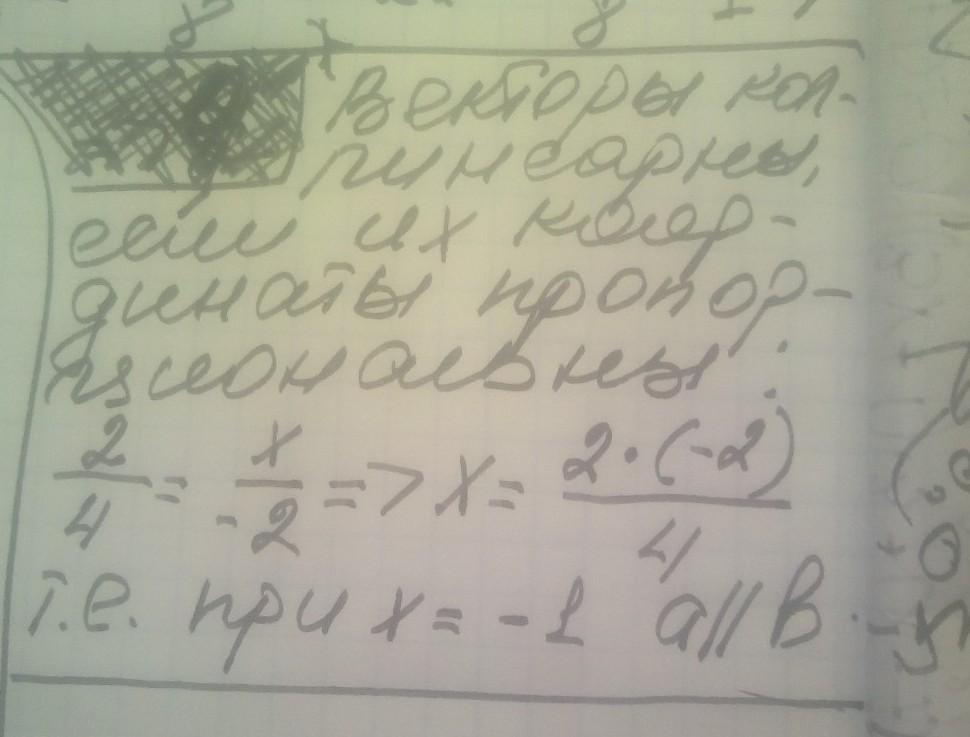 Векторы кол-
линеарны,
если их коор-
динаты пропор-
циональны:
2/4 = x/-2 => x = 2·(-2)/4
т.е. при x = -1 a||b.